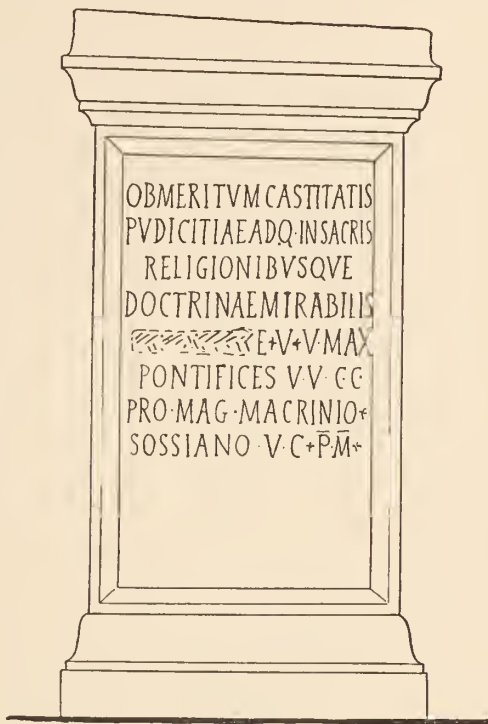 OBMERITVM CASTITATIS
PVDICITIAEADQ·INSACRIS
RELIGIONIBVSQVE
DOCTRINAEMIRABILIS
E+V+V·MAX
PONTIFICES V·V·C·C·
PRO·MAG·MACRINIO+
SOSSIANO·V·C+P̅·M̅+